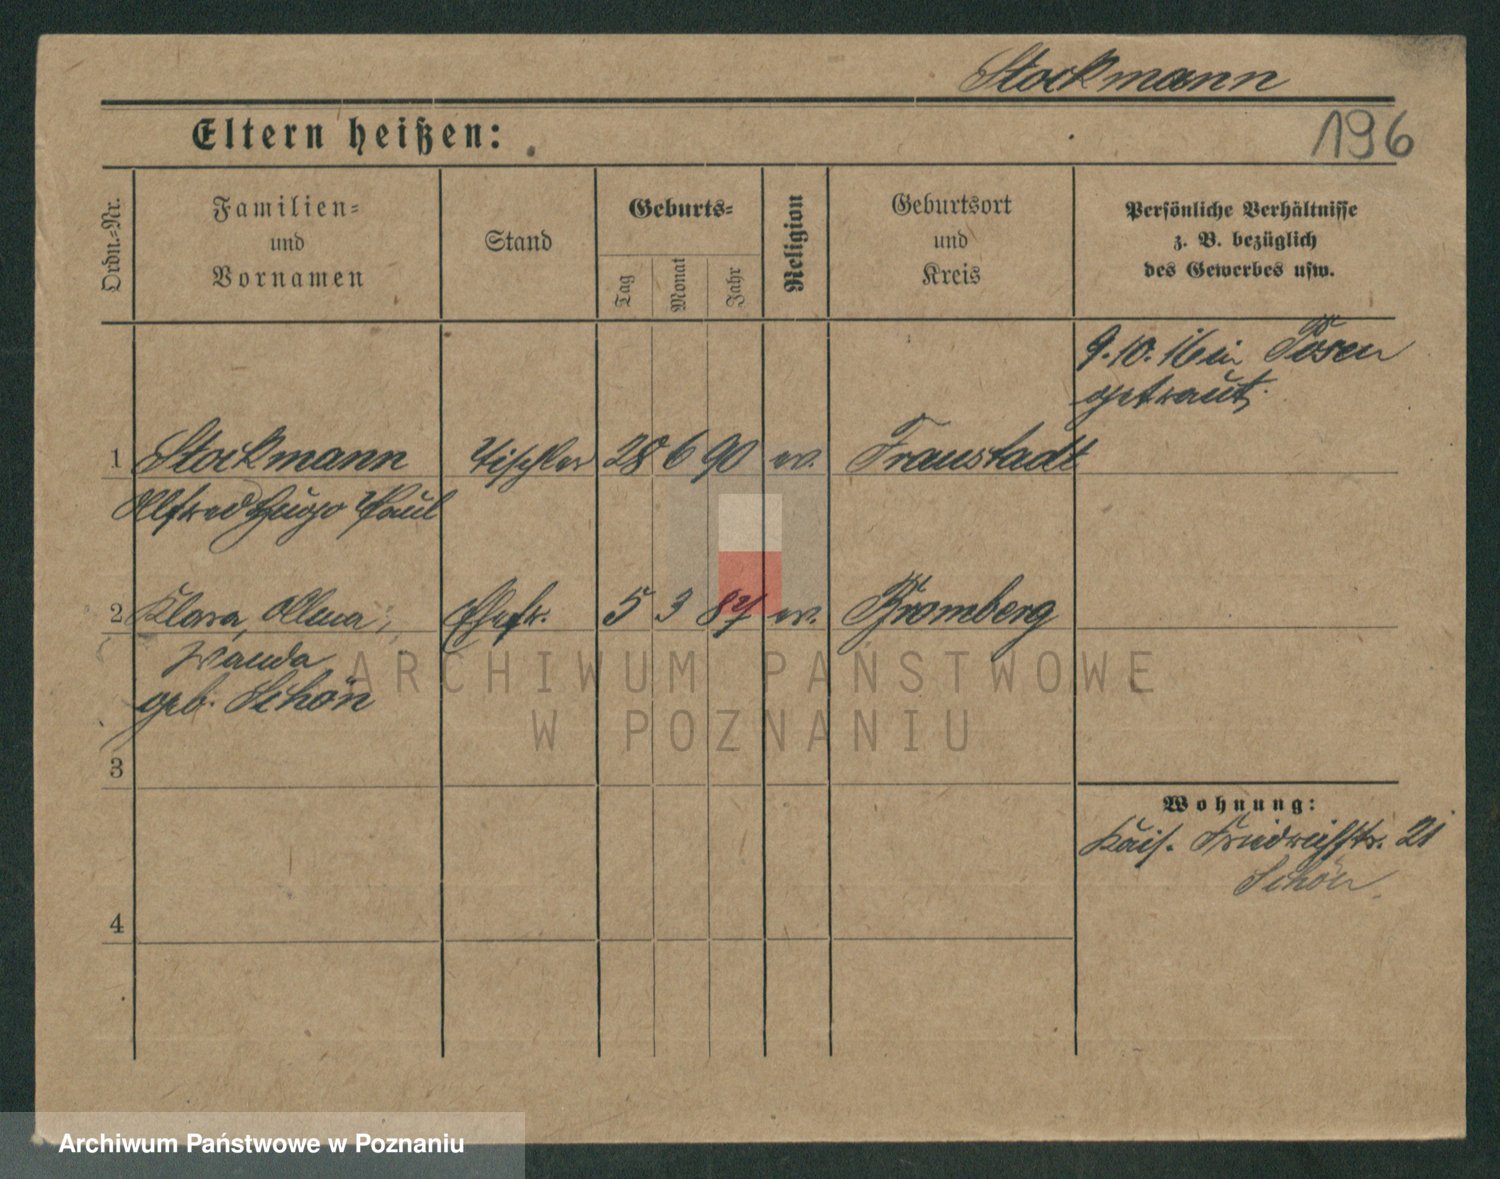 Stockmann
Eltern heißen:
196
Ordn.-Nr.
Familien-
und
Vornamen
Stand
Geburts-
Tag
Monat
Jahr
Religion
Geburtsort
und
Kreis
Persönliche Verhältnisse
z. B. bezüglich
des Gewerbes usw.
9.10.16 in Posen
getraut.
1 Stockmann Tischler 28 6 90 ev. Fraustadt
Alfred Hugo Paul
2 Klara, Alma, Ehefr. 5 3 87 ev. Bromberg
Wanda
geb. Schön
3
Wohnung:
Kais. Friedrichstr. 21
Schön
4
ARCHIWUM PAŃSTWOWE
W POZNANIU
Archiwum Państwowe w Poznaniu